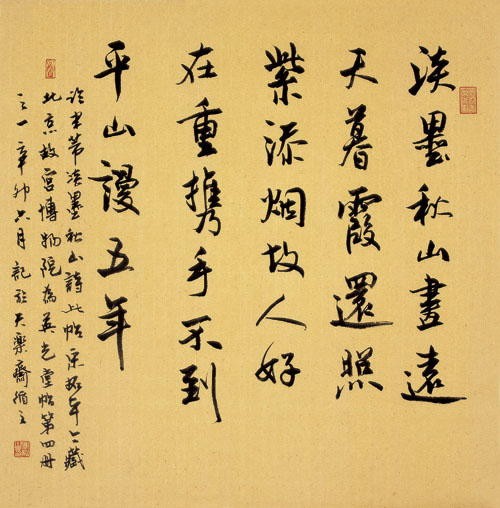 淡墨秋山畫遠
天暮霞還照
紫添烟故人好
在重携手不到
平山謾五年
米芾淡墨秋山詩此帖宋拓本今藏
北京故宮博物院為英光堂帖第四冊
之一辛卯六月記於天樂齋